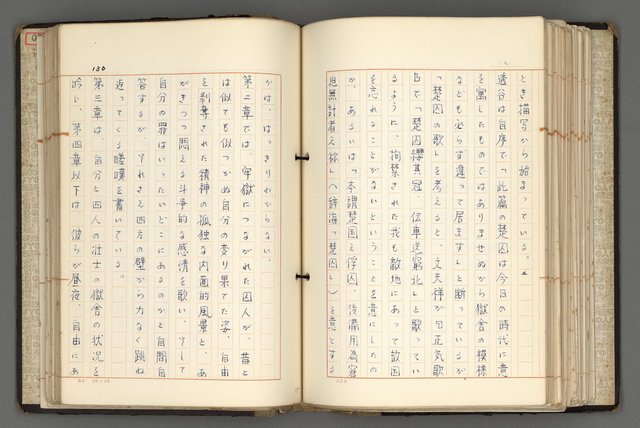 とき描写から始まっている。
透谷は自序で「此篇の楚囚は今日の時代に意
を寓したものではありませぬから獄舎の模様
なども必らず違って居ます」と断っているが、
「楚囚の歌」を考えると、文天祥が「正気歌」
白で「楚囚纓其冠、伝車送窮北」と歌ってい
るように、拘禁された我も敵地にあって故国
を忘れることがないということを意にしたの
か、あるいは「本謂楚国之俘囚、後備用為窘
迫無計者之称」(辞海「楚囚」)を意とする
130
かは、はっきりわからない。
第二章では、牢獄につながれた囚人が、昔と
は似ても似つかぬ自分の変り果てた姿、自由
を剥奪された精神の孤独な内面的風景と、あ
がきつつ悶える斗争的な感情を歌い、そして
自分の罪はいったいどこにあるのかと自問自
答するが、それさえ四方の壁から力なく跳ね
返ってくる嗟嘆を書いている。
第三章は、自分と四人の壮士の獄舎の状況を
吟じ、第四章以下は、彼らが昼夜、自由にあ